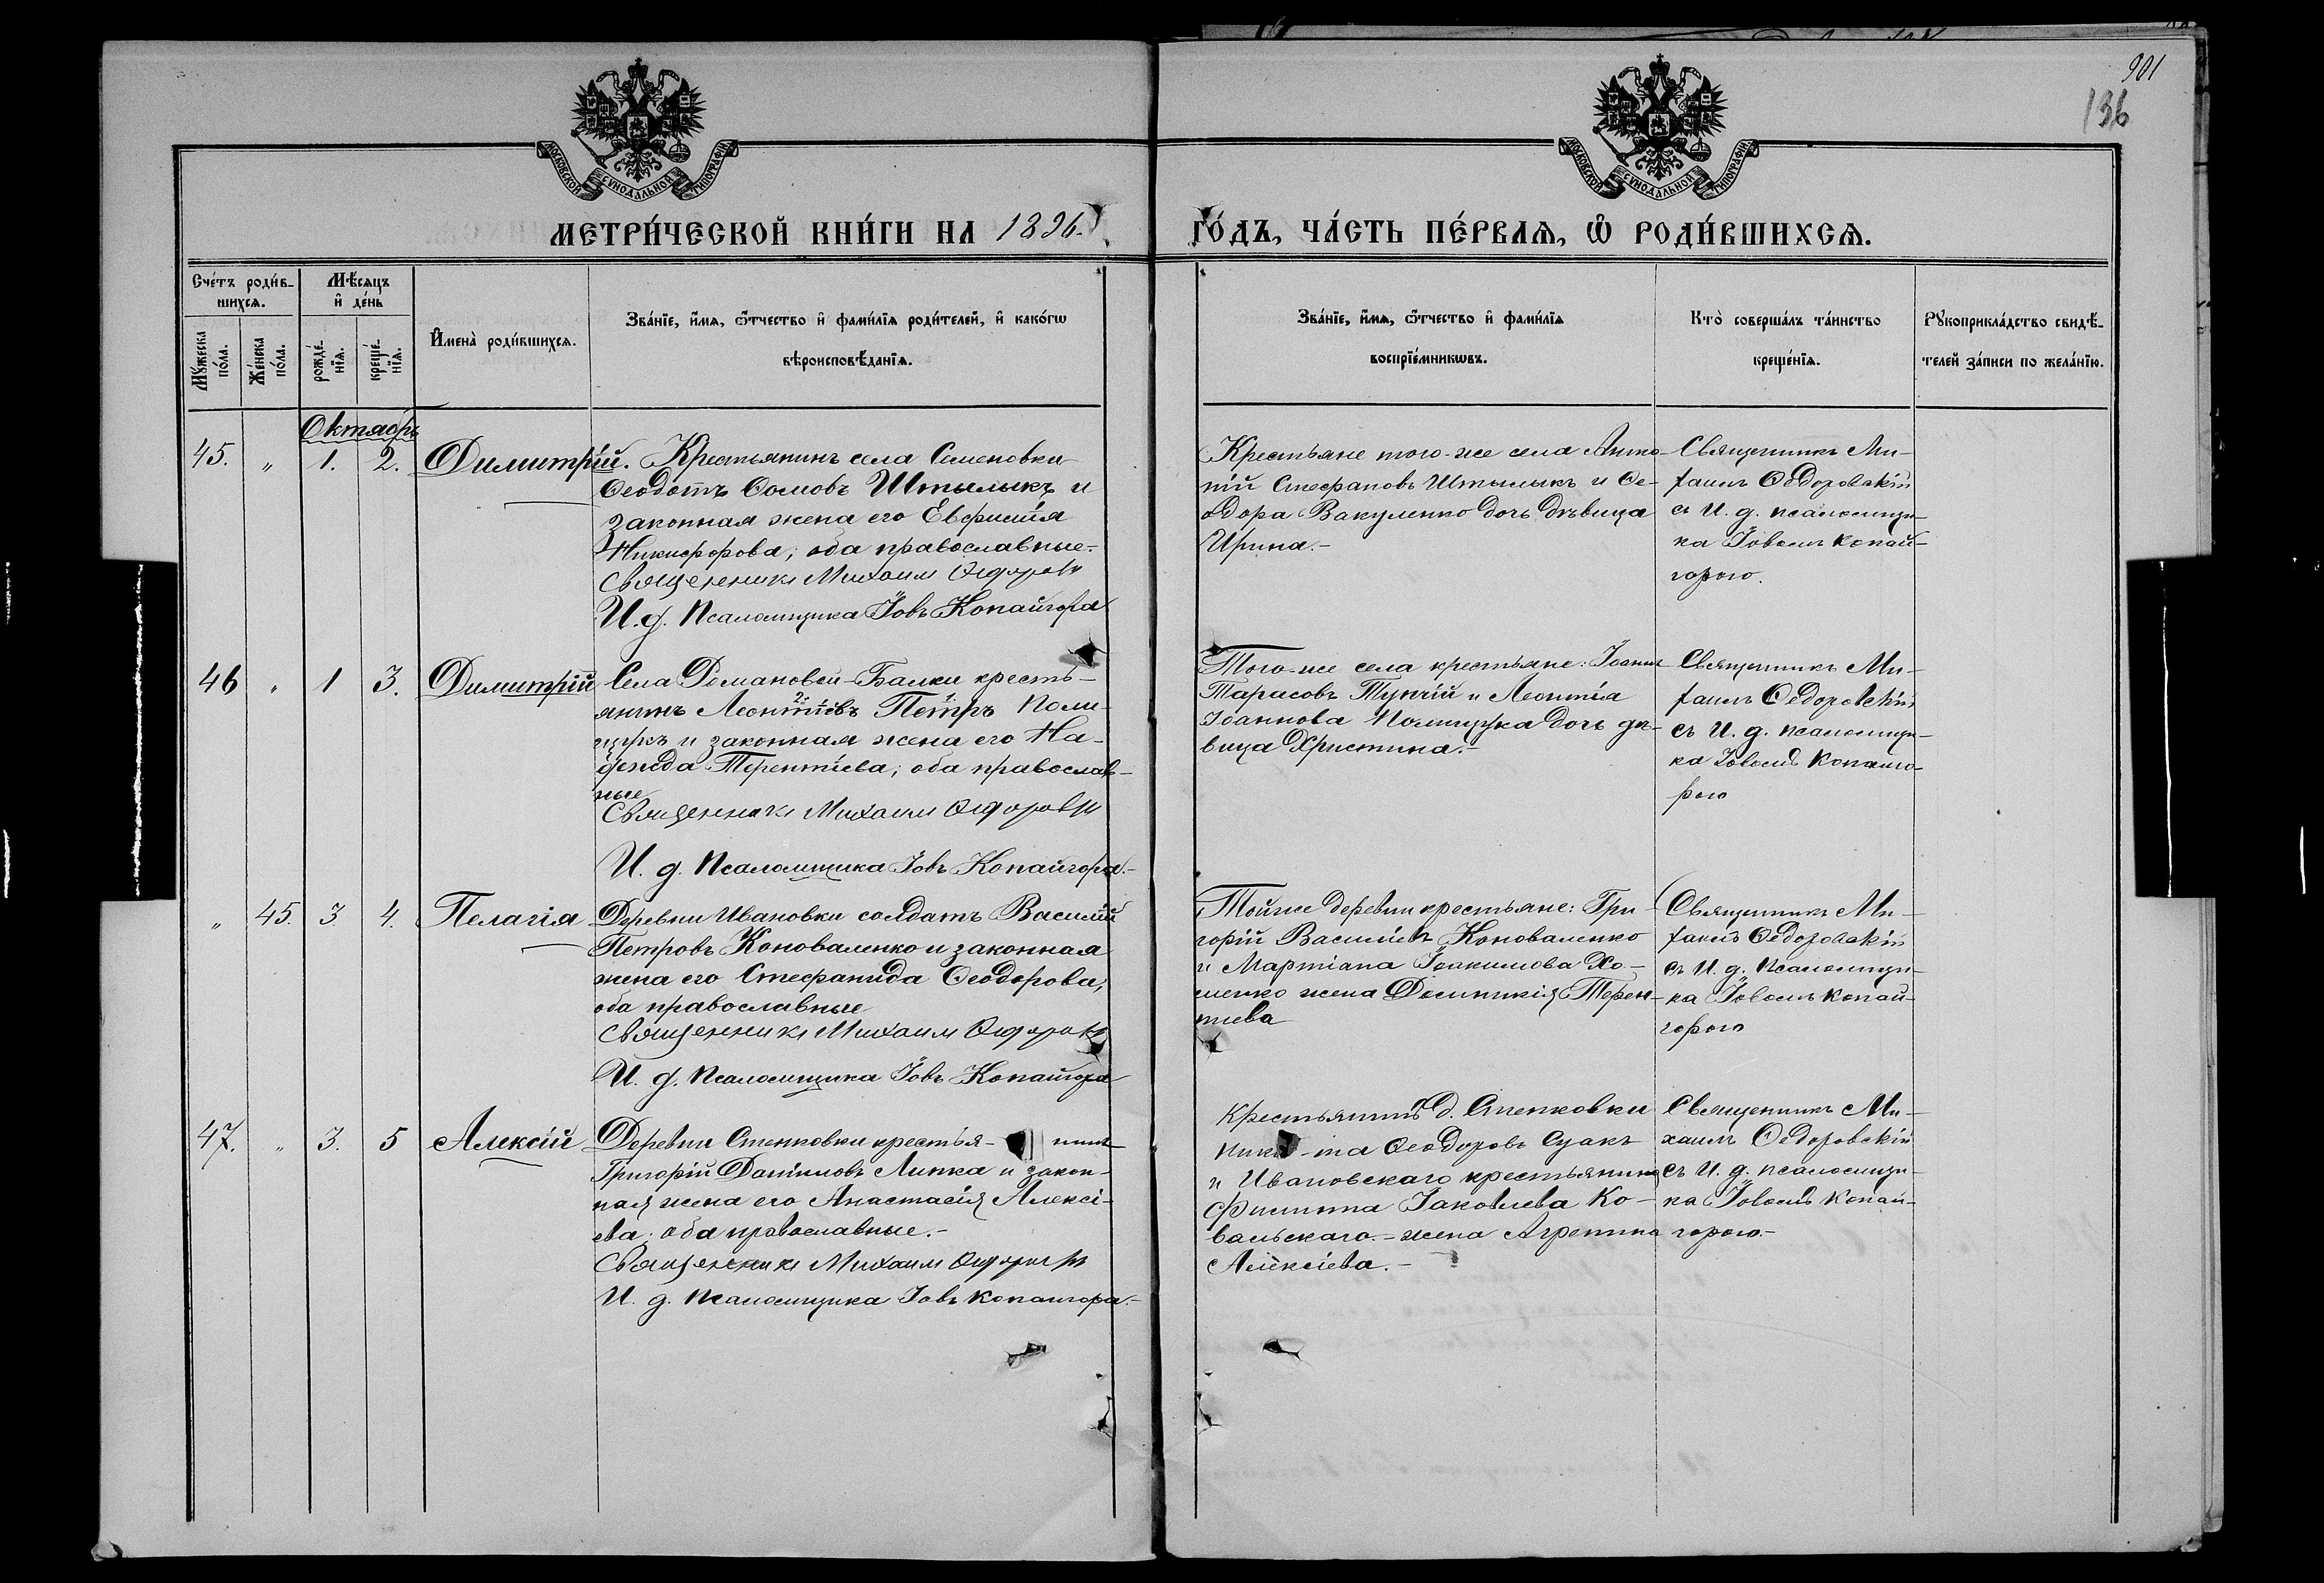 901
136
МОСКОВСКОЙ СѴНОДАЛЬНОЙ ТИПОГРАФІИ
МОСКОВСКОЙ СѴНОДАЛЬНОЙ ТИПОГРАФІИ
МЕТРИ́ЧЕСКОЙ КНИ́ГИ НА 1896. ГО́ДЪ, ЧА́СТЬ ПЕ́РВАѦ, Ѡ РОДИ́ВШИХСѦ.
Сче́тъ роди́в-
шихсѧ.
Мꙋ́жеска по́ла.
Же́нска по́ла.
Мѣ́сѧцъ
и҆ де́нь
рожде́-
нїѧ.
креще́-
нїѧ.
И҆мена̀ роди́вшихсѧ.
Зва́нїе, и҆́мѧ, ѻ҆́тчество и҆ фами́лїѧ роди́телей, и҆ како́гѡ
вѣроисповѣ́данїѧ.
Зва́нїе, и҆́мѧ, ѻ҆́тчество и҆ фами́лїѧ
воспрїе́мникѡвъ.
Кто̀ соверша́лъ та́инство
креще́нїѧ.
Рꙋкоприкла́дство свидѣ́-
телей за́писи по жела́нїю.
Октябрь
45. „ 1. 2. Димитрій.
Крестьянинъ села Семеновки
Ѳеодотъ Ѳомовъ Штылыкъ и
законная жена его Евфимія
Никифорова; оба православные.-
Священникъ Михаилъ
И. д. Псаломщика Іовъ Копайгора
Крестьяне того-же села
Стефановъ Штылыкъ и Ѳе-
одора Вакуленко дочь дѣвица
Ирина.-
Священникъ Ми-
хаилъ Ѳедоровскій
съ И. д. псаломщи-
ка Іовомъ Копай-
горою.
46 „ 1 3. Димитрій
Села Романовой-Балки кресть-
янинъ Леонтіевъ Петръ
и законная жена его На-
дежда Терентіева; оба православ-
ные
Священникъ Михаилъ
И. д. Псаломщика Іовъ Копайгора.-
Того-же села крестьяне: Іоаннъ
Тарасовъ и Леонтія
Іоаннова дочь дѣ-
вица Христина.-
Священникъ Ми-
хаилъ Ѳедоровскій
съ И. д. псаломщи-
ка Іовомъ Копайго-
рою
„ 45. 3. 4. Пелагія
Деревни Ивановки солдатъ Василій
Петровъ Коноваленко и законная
жена его Стефанида Ѳеодорова,
оба православные
Священникъ Михаилъ
И. д. Псаломщика Іовъ Копайгора
Той-же деревни крестьяне: Гри-
горій Василіевъ Коноваленко
и Іоакимова Хо-
менко жена Домникія Терен-
тіева
Священникъ Ми-
хаилъ Ѳедоровскій
съ И. д. Псаломщи-
ка Іовомъ Копай-
горою
47. „ 3. 5 Алексій
Деревни Степковки крестья- нинъ
Григорій Даніиловъ Липка и закон-
ная жена его Анастасія Алексі-
ева; оба православные.-
Священникъ Михаилъ
И. д. Псаломщика Іовъ Копайгора.-
Крестьянинъ д. Степковки
Ники-та Ѳеодоровъ
и Ивановскаго крестьянина
Филиппа Іаковлева Ко-
вальскаго.- жена Агрепина
Алексіева.-
Священникъ Ми-
хаилъ Ѳедоровскій
съ И. д. псаломщи-
ка Іовомъ Копай-
горою.-